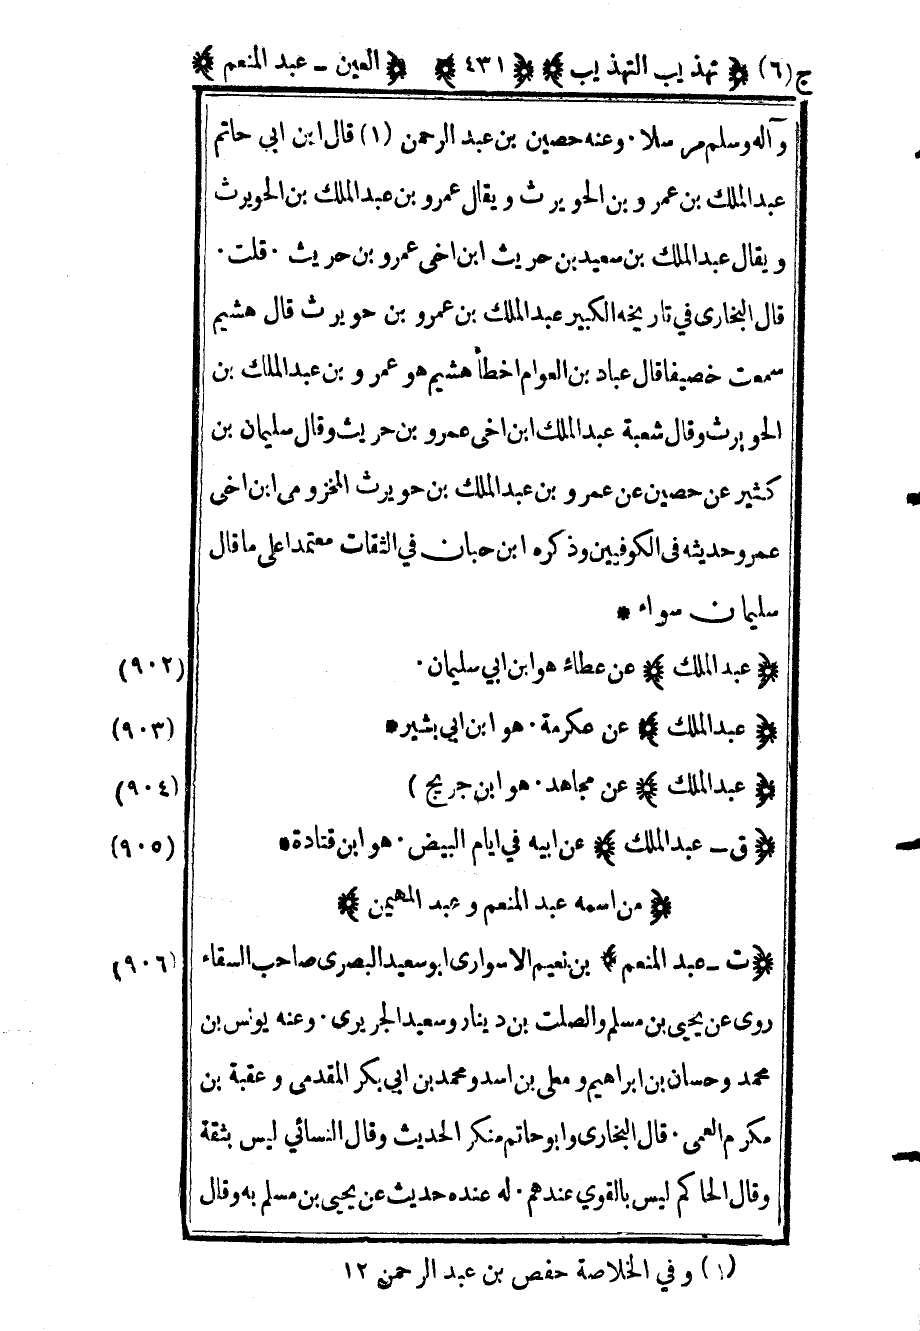 ج (٦) ﴿ تهذيب التهذيب ﴾ ﴿ ٤٣١ ﴾ ﴿ العين ــ عبد المنعم ﴾
وآله وسلم مرسلا٠ وعنه حصين بن عبد الرحمن (١) قال ابن ابي حاتم
عبد الملك بن عمرو بن الحويرث ويقال عمرو بن عبد الملك بن الحويرث
ويقال عبد الملك بن سعيد بن حريث ابن اخى عمرو بن حريث ٠ قلت ٠
قال البخارى في تاريخه الكبير عبد الملك بن عمرو بن حويرث قال هشيم
سمعت خصيفا قال عباد بن العوام اخطأ هشيم هو عمرو بن عبد الملك بن
الحويرث وقال شعبة عبد الملك ابن اخى عمرو بن حريث وقال سليمان بن
كثير عن حصين عن عمرو بن عبد الملك بن حويرث المخزومى ابن اخى
عمرو حديثه فى الكوفيين وذكره ابن حبان في الثقات معتمدا على ما قال
سليمان سواء *
﴿ عبد الملك ﴾ عن عطاء هو ابن ابي سليمان ٠ (٩٠٢)
﴿ عبد الملك ﴾ عن عكرمة ٠ هو ابن ابي بشير * (٩٠٣)
﴿ عبد الملك ﴾ عن مجاهد ٠ هو ابن جريج ) (٩٠٤)
﴿ ق ــ عبد الملك ﴾ عن ابيه في ايام البيض ٠ هو ابن قتادة * (٩٠٥)
﴿ من اسمه عبد المنعم و عبد المهيمن ﴾
﴿ ت ــ عبد المنعم ﴾ بن نعيم الاسوارى ابو سعيد البصرى صاحب السقاء (٩٠٦)
روى عن يحيى بن مسلم والصلت بن دينار وسعيد الجريرى ٠ وعنه يونس بن
محمد وحسان بن ابراهيم و معلى بن اسد ومحمد بن ابي بكر المقدمى و عقبة بن
مكرم العمى ٠ قال البخارى وابو حاتم منكر الحديث وقال النسائي ليس بثقة
وقال الحاكم ليس بالقوي عندهم ٠ له عنده حديث عن يحيى بن مسلم به وقال
(١) وفي الخلاصة حفص بن عبد الرحمن ١٢